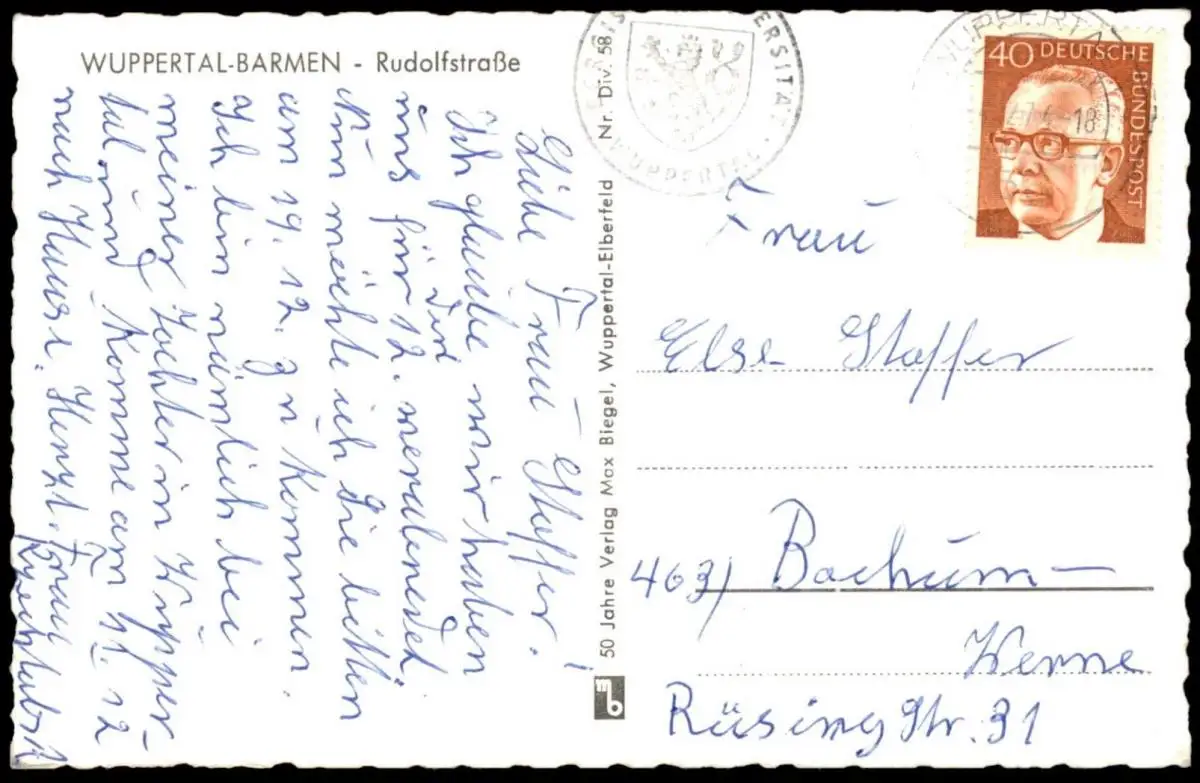 WUPPERTAL-BARMEN - Rudolfstraße
Liebe Frau Staffer!
Ich glaube wir haben
uns für den 12. verabredet.
Nun möchte ich Sie bitten
am 19. 12. zu kommen.
Ich bin nämlich bei
meiner Tochter in Wupper-
tal und komme am 11. 12
nach Hause. Herzl. Frau
50 Jahre Verlag Max Biegel, Wuppertal-Elberfeld Nr. Div. 58
mb
WUPPERTAL
WUPPERTAL
18
40 DEUTSCHE
BUNDESPOST
Frau
Else Staffer
463) Bochum-
Werne
Rüsing Str. 31